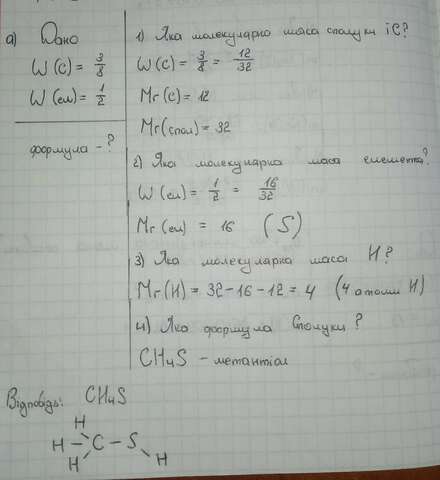 а) Дано
W (C) = 3/8
W (ел) = 1/2
формула - ?
1) Яка молекулярна маса сполуки і C?
W (C) = 3/8 = 12/32
Mr (C) = 12
Mr (спол) = 32
2) Яка молекулярна маса елемента?
W (ел) = 1/2 = 16/32
Mr (ел) = 16 (S)
3) Яка молекулярна маса H?
Mr (H) = 32 - 16 - 12 = 4 (4 атоми H)
4) Яка формула сполуки?
CH4S - метантіол
Відповідь: CH4S
H
H - C - S
H H